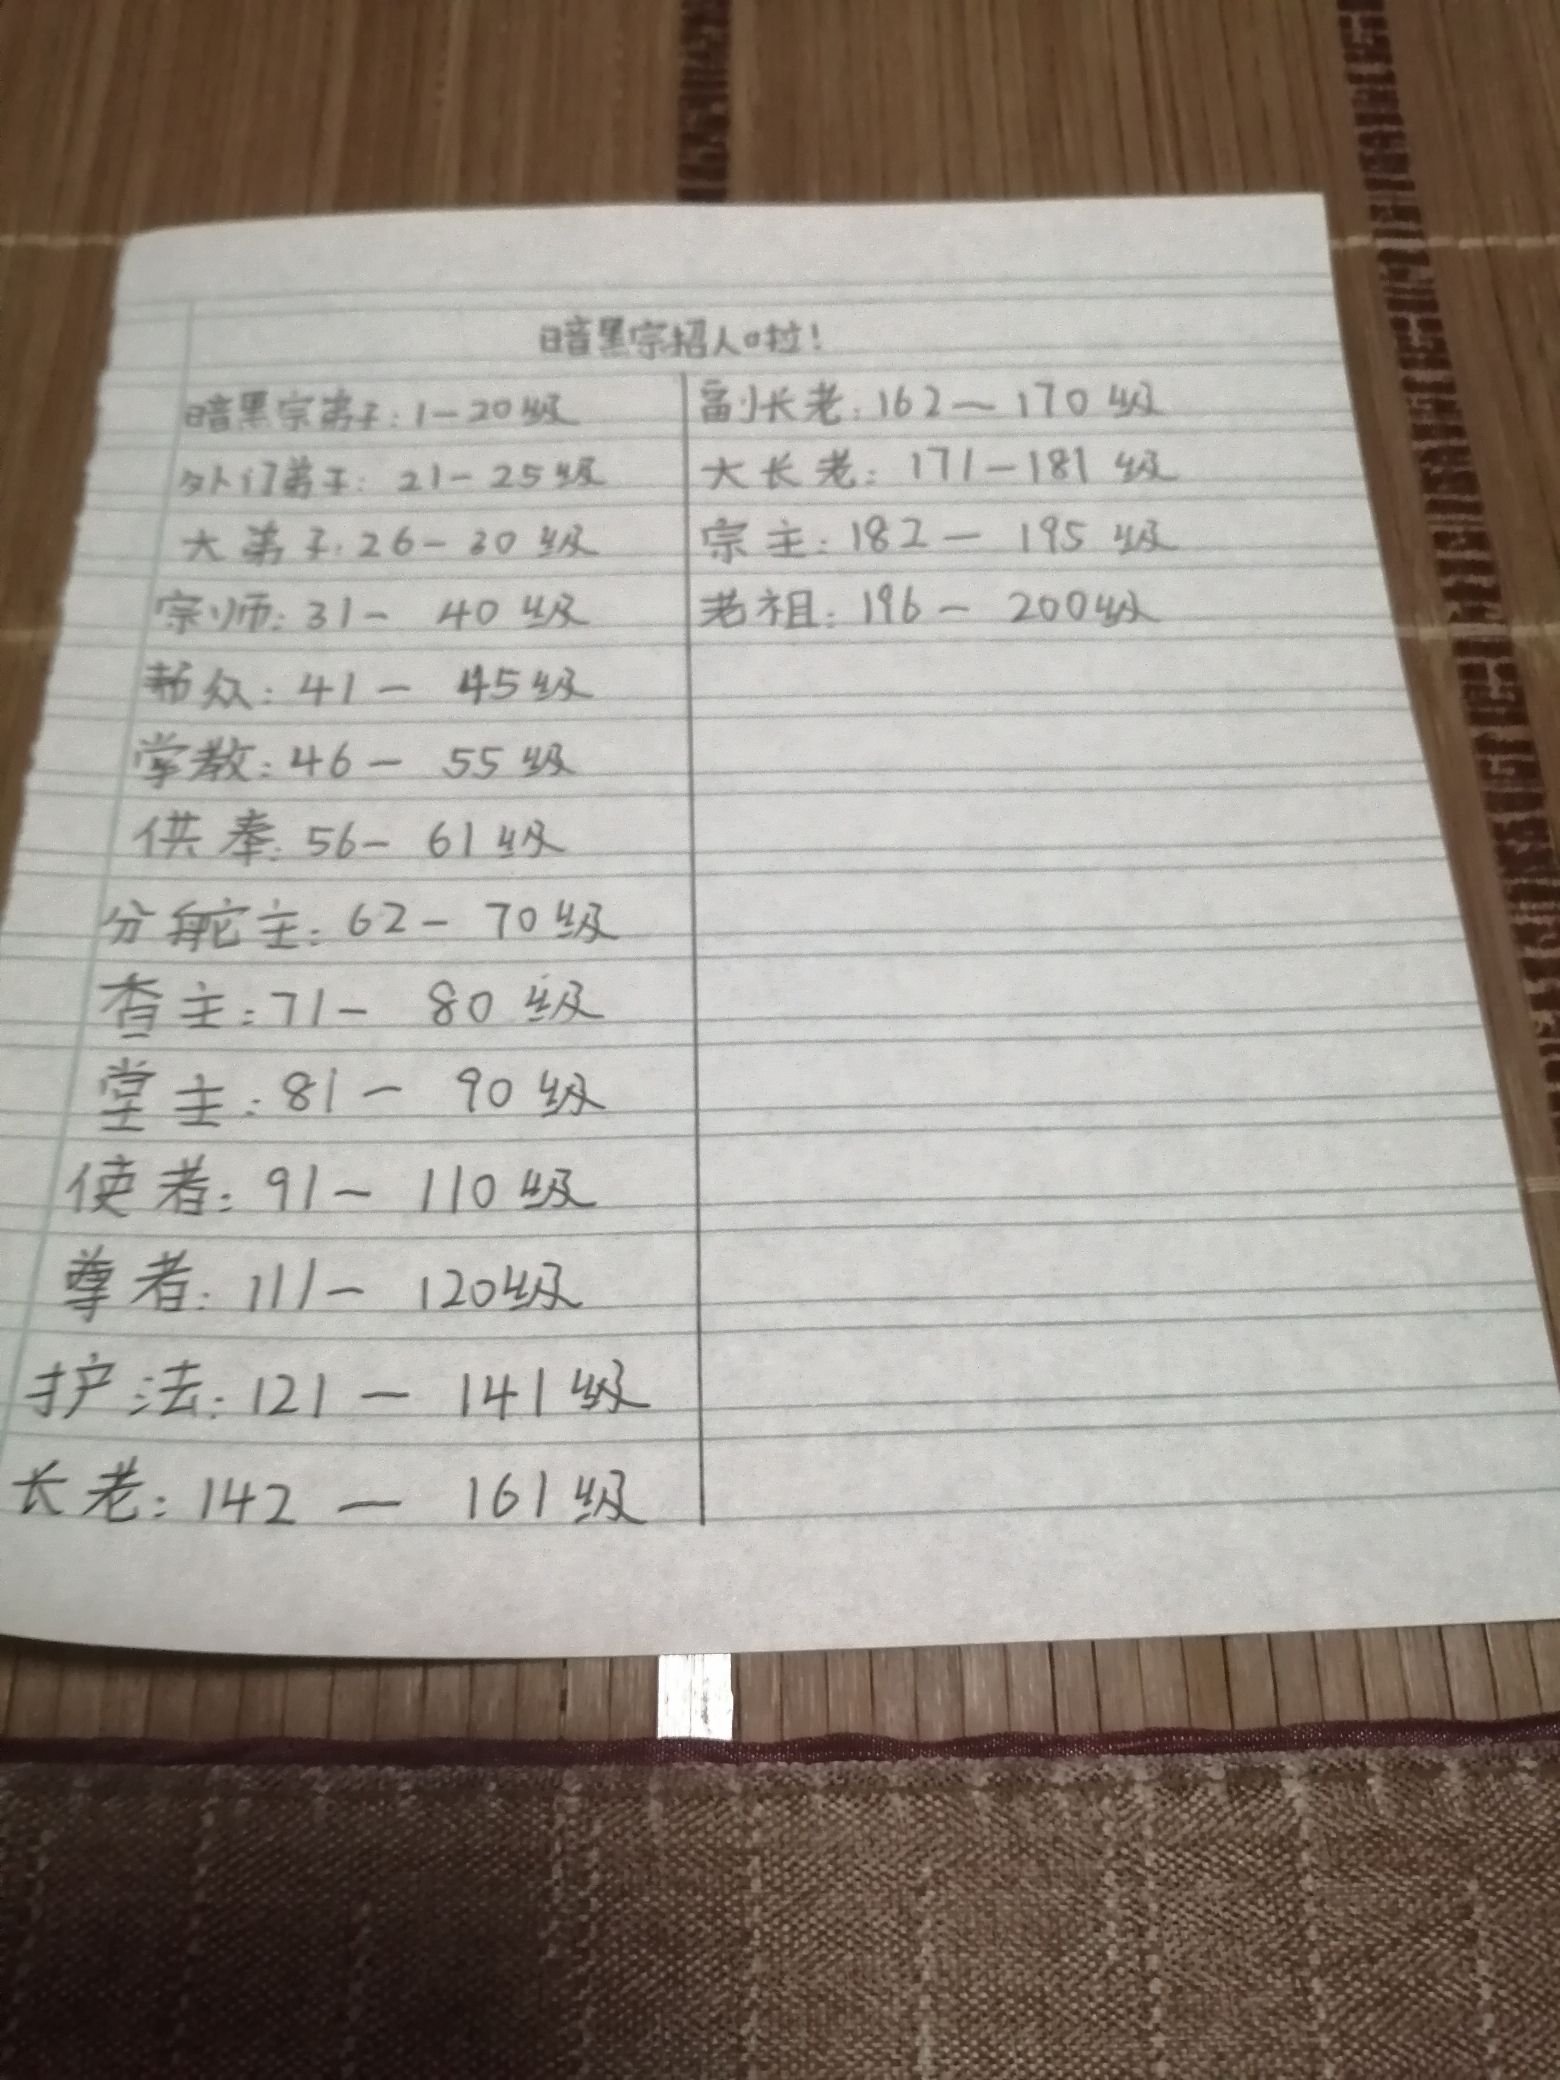 暗黑宗招人啦!
暗黑宗弟子:1-20级
外门弟子:21-25级
大弟子:26-30级
宗师:31-40级
帮众:41-45级
掌教:46-55级
供奉:56-61级
分舵主:62-70级
香主:71-80级
堂主:81-90级
使者:91-110级
尊者:111-120级
护法:121-141级
长老:142-161级
副长老:162-170级
大长老:171-181级
宗主:182-195级
老祖:196-200级